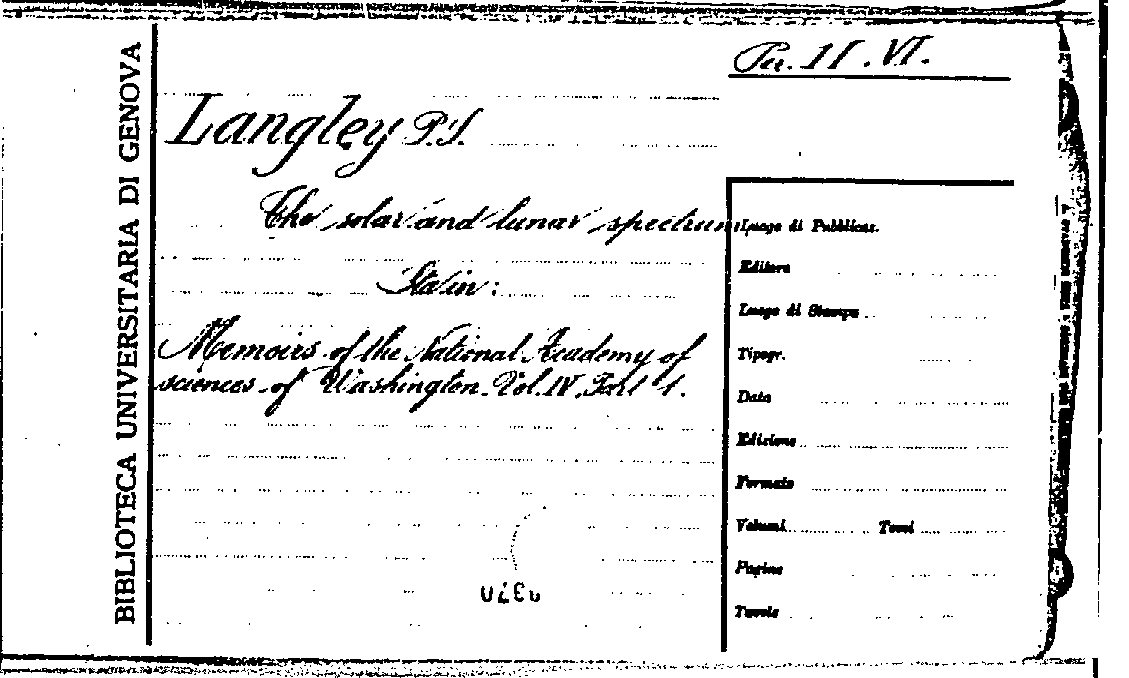 BIBLIOTECA UNIVERSITARIA DI GENOVA
Per. II. VI.
Langley P.S.
The solar and lunar spectrum
Sta in:
Memoirs of the National Academy of
sciences of Washington. Vol. IV, Part 1.
Luogo di Pubblicaz.
Editore
Luogo di Stampa
Tipogr.
Data
Edizione
Formato
Volumi Tomi
Pagine
Tavole